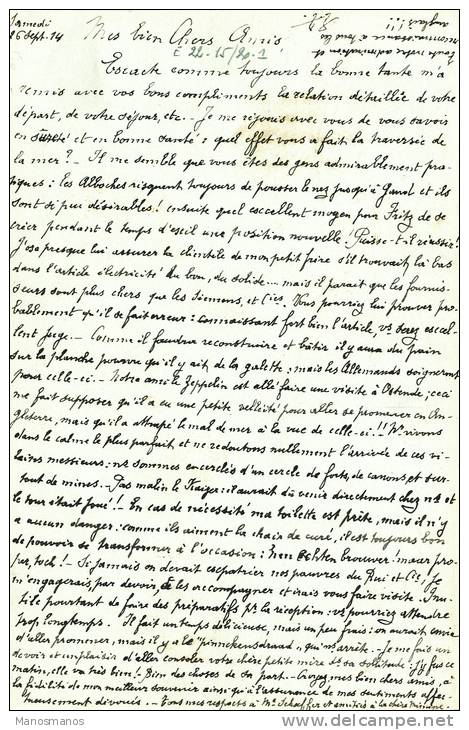 Samedi
26 Sept. 14
Mes bien Chers Amis
E 22-15/20-1
Exacte comme toujours la bonne tante m'a
remis avec vos bons compliments la relation détaillée de votre
départ, de votre séjour, etc. - Je me réjouis avec vous de vous savoir
en sureté et en bonne santé : quel effet vous a fait la traversée de
la mer ? - Il me semble que vous êtes des gens admirablement pra-
tiques : les Alboches risquent toujours de pousser le nez jusqu'à Gand et ils
sont si peu désirables ! ensuite quel excellent moyen pour Fritz de se
créer pendant le temps d'exil une position nouvelle. Puisse-t-il réussir !
J'ose presque lui assurer la clientèle de mon petit frère s'il trouvait là bas
dans l'article électricité du bon, du solide... mais il parait que les fournis-
seurs sont plus chers que les Siemens, et Cies. Vous pourriez lui prouver pro-
bablement qu'il se fait erreur : connaissant fort bien l'article, vs serez excel-
lent juge. - Comme il faudra reconstruire et bâtir il y aura du pain
sur la planche pourvu qu'il y ait de la galette : mais les Allemands soigneront
pour celle-ci. - Notre ami le Zeppelin est allé faire une visite à Ostende ; ceci
me fait supposer qu'il a eu une petite velléité pour aller se promener en An-
gleterre, mais qu'il a attrapé le mal de mer à la vue de celle-ci !! Ns vivons
dans le calme le plus parfait et ne redoutons nullement l'arrivée de ces vi-
lains messieurs : ns sommes encerclés d'un cercle de forts, de canons et sur-
tout de mines. Pas malin le Kaizer : il aurait dû venir directement chez ns et
le tour était joué ! - En cas de nécessité ma toilette est prête, mais il n'y
a aucun danger : comme ils aiment la chair de curé, il est toujours bon
de pouvoir se transformer à l'occasion : een echten brouwer ! maar pro-
per, toch ! - Si jamais on devait expatrier nos pauvres du Rui et Cie, je
m'engagerais, par devoir, à les accompagner et irais vous faire visite. Inu-
tile pourtant de faire des préparatifs pr la réception : vs pourriez attendre
trop longtemps. Il fait un temps délicieux, mais un peu frais : on aurait envie
d'aller promener, mais il y a le "pinnekensdraad", qui ns arrête. Je me fais un
devoir et un plaisir d'aller consoler votre chère petite mère ds sa solitude : j'y fus ce
matin, elle va très bien ! Bien des choses de sa part. Croyez mes bien chers amis, à
la fidélité de mon meilleur souvenir ainsi qu'à l'assurance de mes sentiments affec-
tueusement dévoués. - Tous mes respects à Mr
Manosmanos
www.delcampe.net